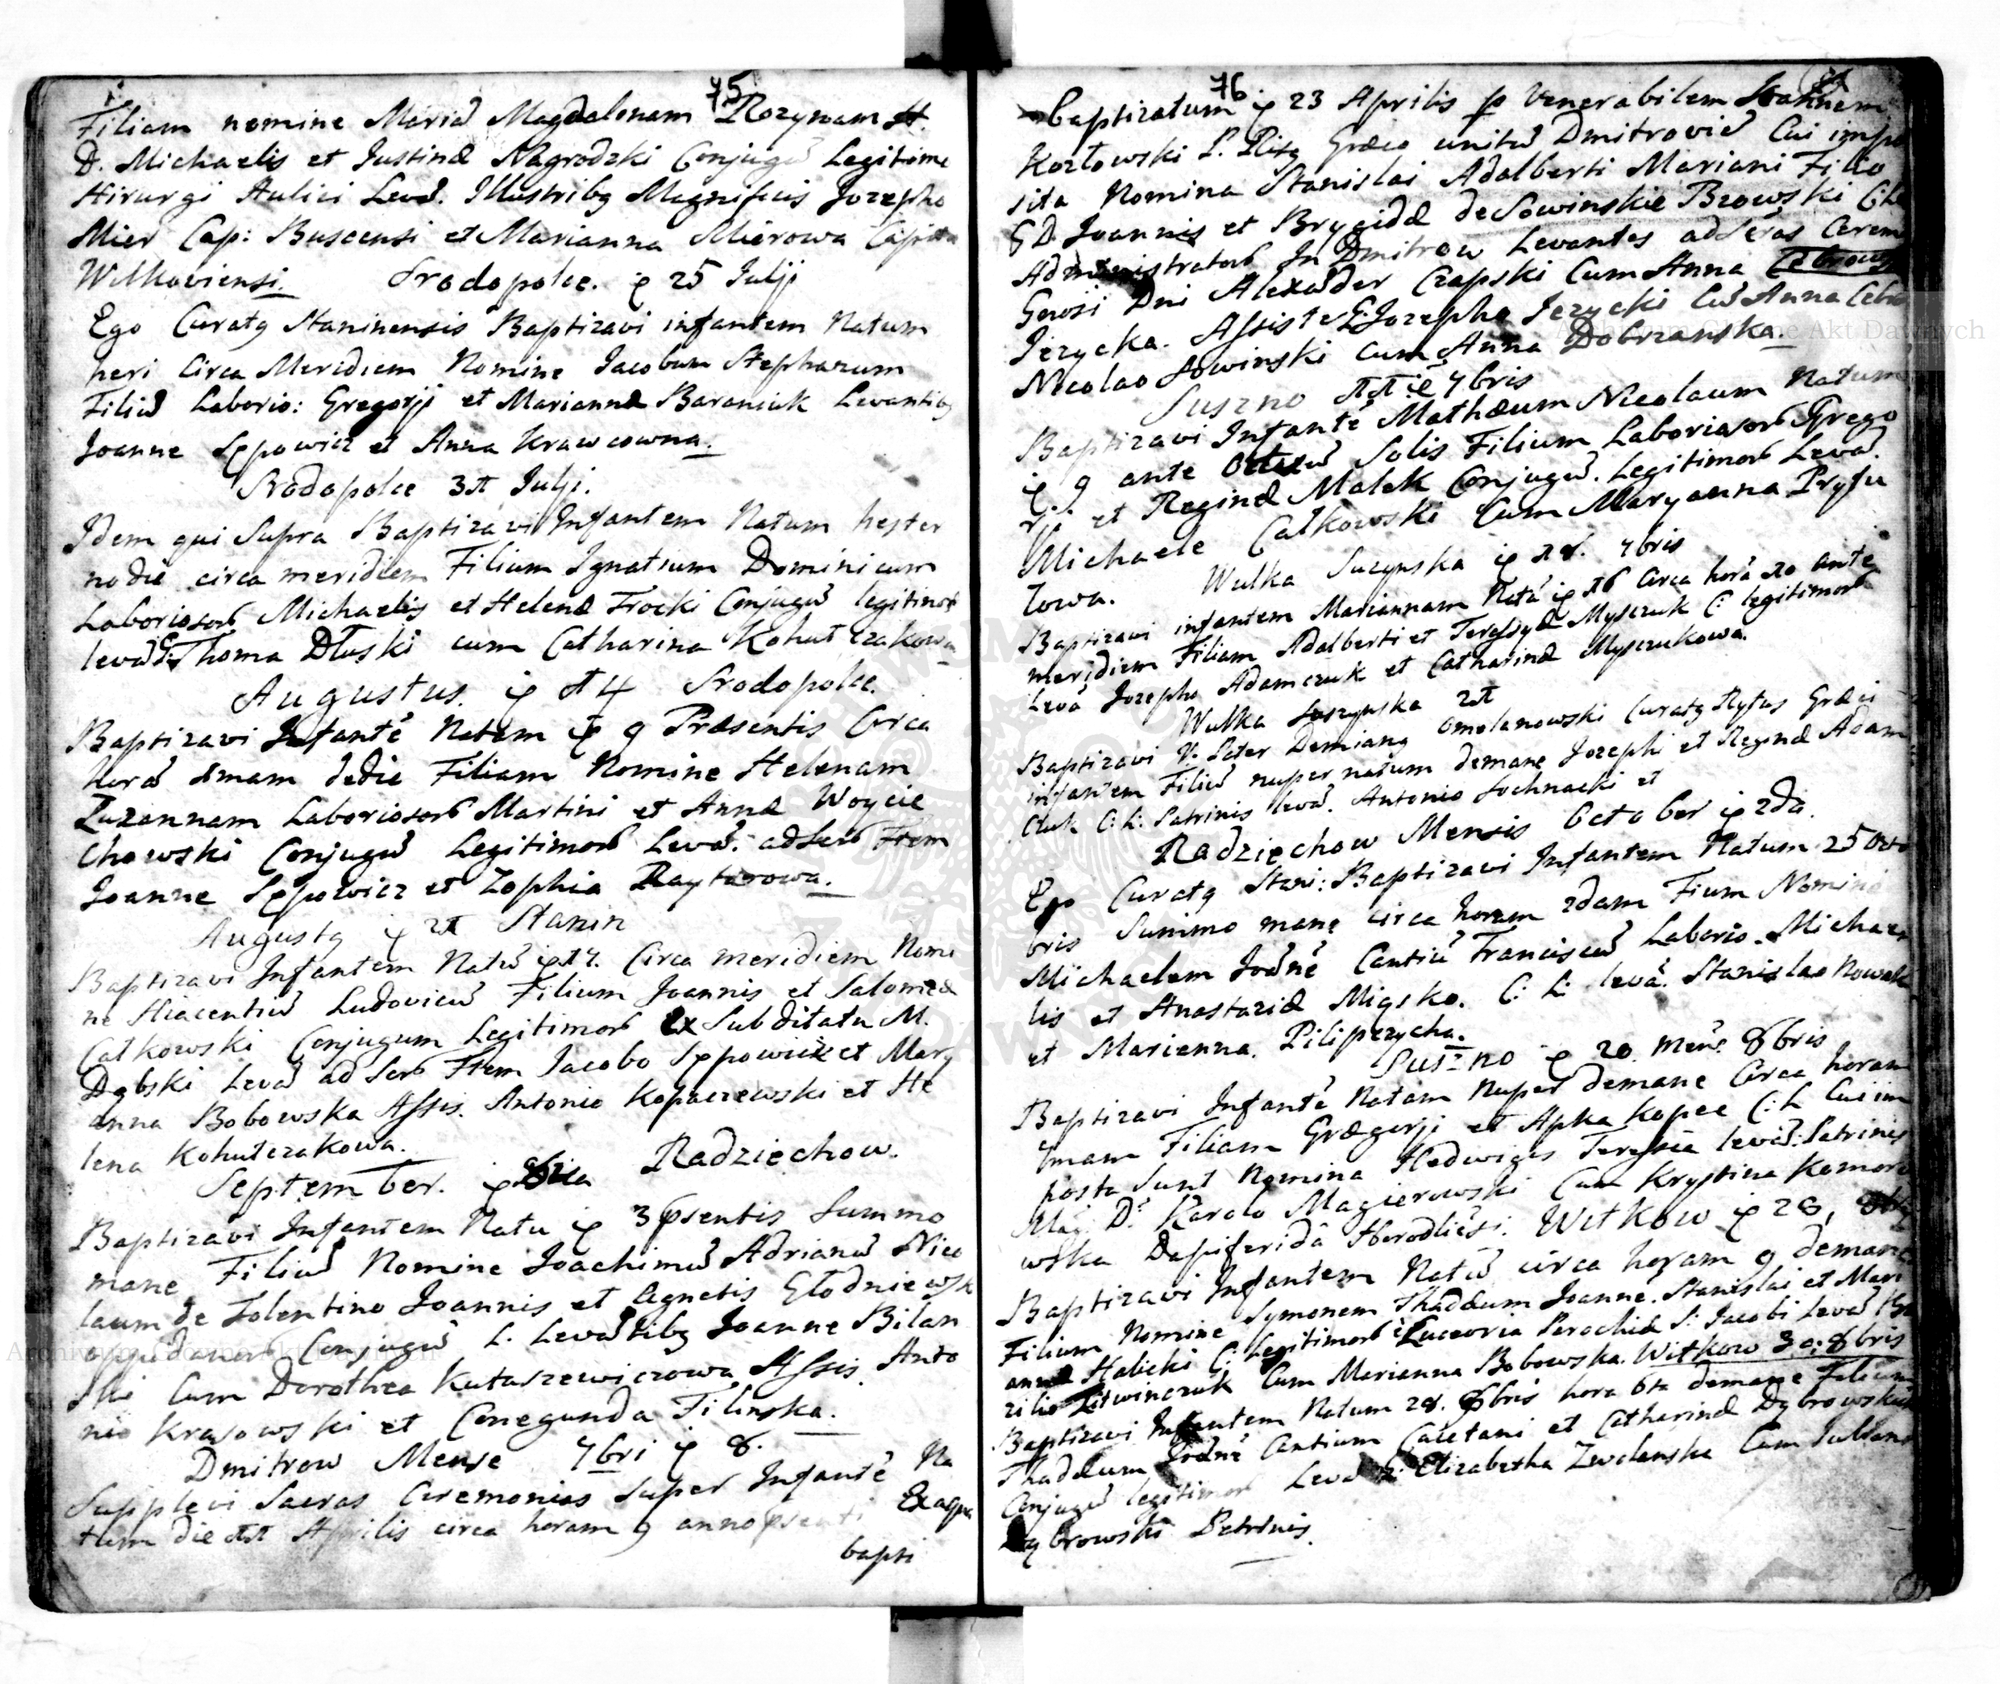 75
Filiam nomine Mariā Magdalenam Rozynam M.
D. Michaelis et Justinæ Nagrodzki Conjugū Legitime
Hirurgi Aulici Levā. Illustribg Magnificis Jozepho
Mier Cap: Buscensi et Marianna Mierowa Capita
Witkoviensi. Srodopolce. 25 Julji
Ego Curatg Staninensis Baptizavi infantem Natum
heri Circa Meridiem Nomine Jacobum Stephanum
Filiū Laborio: Gregorji et Mariannæ Baraniuk Levantibg
Joanne Sępowicz et Anna Krawcowna.
Srodopolce 31 Julji.
Idem qui Supra Baptizavi Infantem Natum hester
nodie circa meridiem Filium Ignatium Dominicum
Laboriosorb Michaelis et Helenæ Trocki Conjugū legitimorb
levā Thoma Dłuski cum Catharina Kohutczakowa
Augustus. 14 Srodopolce.
Baptizavi Infantē Natam 9 Præsentis Circa
horā 1mam dedie Filiam Nomine Helenam
Zuzannam Laboriosorb Martini et Annæ Woycie
chowski Conjugū Legitimorb Levā: adSerb Ftem
Joanne Sępowicz et Zophia Raytarowa.
Augustg 21 Stanin
Baptizavi Infantem Natū 17. Circa meridiem Nomi
ne Hiacentiū Ludovicū Filium Joannis et Salomeæ
Całkowski Conjugum Legitimorb Ex Subditatu M.
Dąbski Levā ad Serb Ftem Jacobo Sępowicz et Mary
anna Bobowska Assis. Antonio Kopaczewski et He
lena Kohutczakowa.
September. Radziechow.
Baptizavi Infantem Natu 3 psentis Summo
mane Filiū Nomine Joachimū Adrianū Nico
laum de Tolentino Joannis et Agnetis Głodniewsk
oppidanorb Conjugū L. Levātibg Joanne Bilan
ski Cum Dorothea Kutaszewiczowa Assis. Anto
nio Krasowski et Conegunda Filinska.
Dmitrow Mense 7bri 8.
Supplevi Sacras Ceremonias super Infantē Na
tum die 11 Aprilis circa horam 9 anno psenti Exaqua
bapti
76
baptizatum 23 Aprilis p Venerabilem Joannem
Kozłowski P. Græco unitū Dmitroviē Cui impo
sita Nomina Stanislai Adalberti Mariani Filio
GD Joannis et Brygidæ de Sowinskie Brzowski C:L
Administratorb In Dmitrow Levantes adSerās Cerem
Gerosi Dni Alexāder Czapski Cum Anna
Jezycka. Assiste G: Jozepho Jezycki Cū Anna
Nicolao Sowinski Cum Anna Dobrzanska.
Suszno 11 7bris
Baptizavi Infantē Mathæum Nicolaum Natum
9 ante Ortū Solis Filium Laboriosorb Grego
rji et Reginæ Malek Conjugū. Legitimorb Levā.
Michaele Całkowski Cum Maryanna Prysu
lowa. Wulka Suszynska 18. 7bris
Baptizavi infantem Mariannam Natā 16 Circa horā 10 ante
meridiem Filiam Adalberti et Teressyæ Mysczuk C: legitimorb
Levā Jozepho Adamczuk et Catharinæ Mysczukowa.
Wulka Suszynska 21
Baptizavi V. Pater Demiang Omelanowski Curatg Rytus Græci
infantem Filiū nuper natum demane Jozephi et Reginæ Adam
cluk C: L: Patrinis levā. Antonio Sochnacki et
Radziechow Mensis October 2da.
Ego Curatg Stani: Baptizavi Infantem Natum 25 Octo
bris Summo mane circa horam 2dam Fium Nomine
Michaelem Joānē Cantiū Franciscū Laborio. Michae
lis et Anastaziæ Migsko. C: L: levā. Stanislao Nowak
et Marianna. Pilipczycha.
Suszno 20 Mens 8bris
Baptizavi Infantē Natam Nuper demane Circa horam
1mam Filiam Grægorji et Apka Kopec C: L Cui im
posta Sunt Nomina Hedwigis Teresia levā: Patrinis
Mag: D: Karolo Magierowski Cum Krystina Komoro
wska Dapiferidā Horodliēsi. Witkow 28,
Baptizavi Infantem Natū circa horam 9 demane
Filium Nomine Symonem Thaddæum Joanne. Stanislai et Mari
annæ Halicki C: Legitimorb Luceoria Parochiæ S: Jacobi Levā
zilio Litwinczuk Cum Marianna Bobowska. Witkow 30. 8bris
Baptizavi Infantem Natum 28. 8bris hora 6ta demane Filium
Thaddæum Joānē Cantium Caietani et Catharinæ Dąbrowski
Conjugū legitimorb Levā Elizabetha Zwolanska Cum Juliano
Dąbrowski Patrinis.